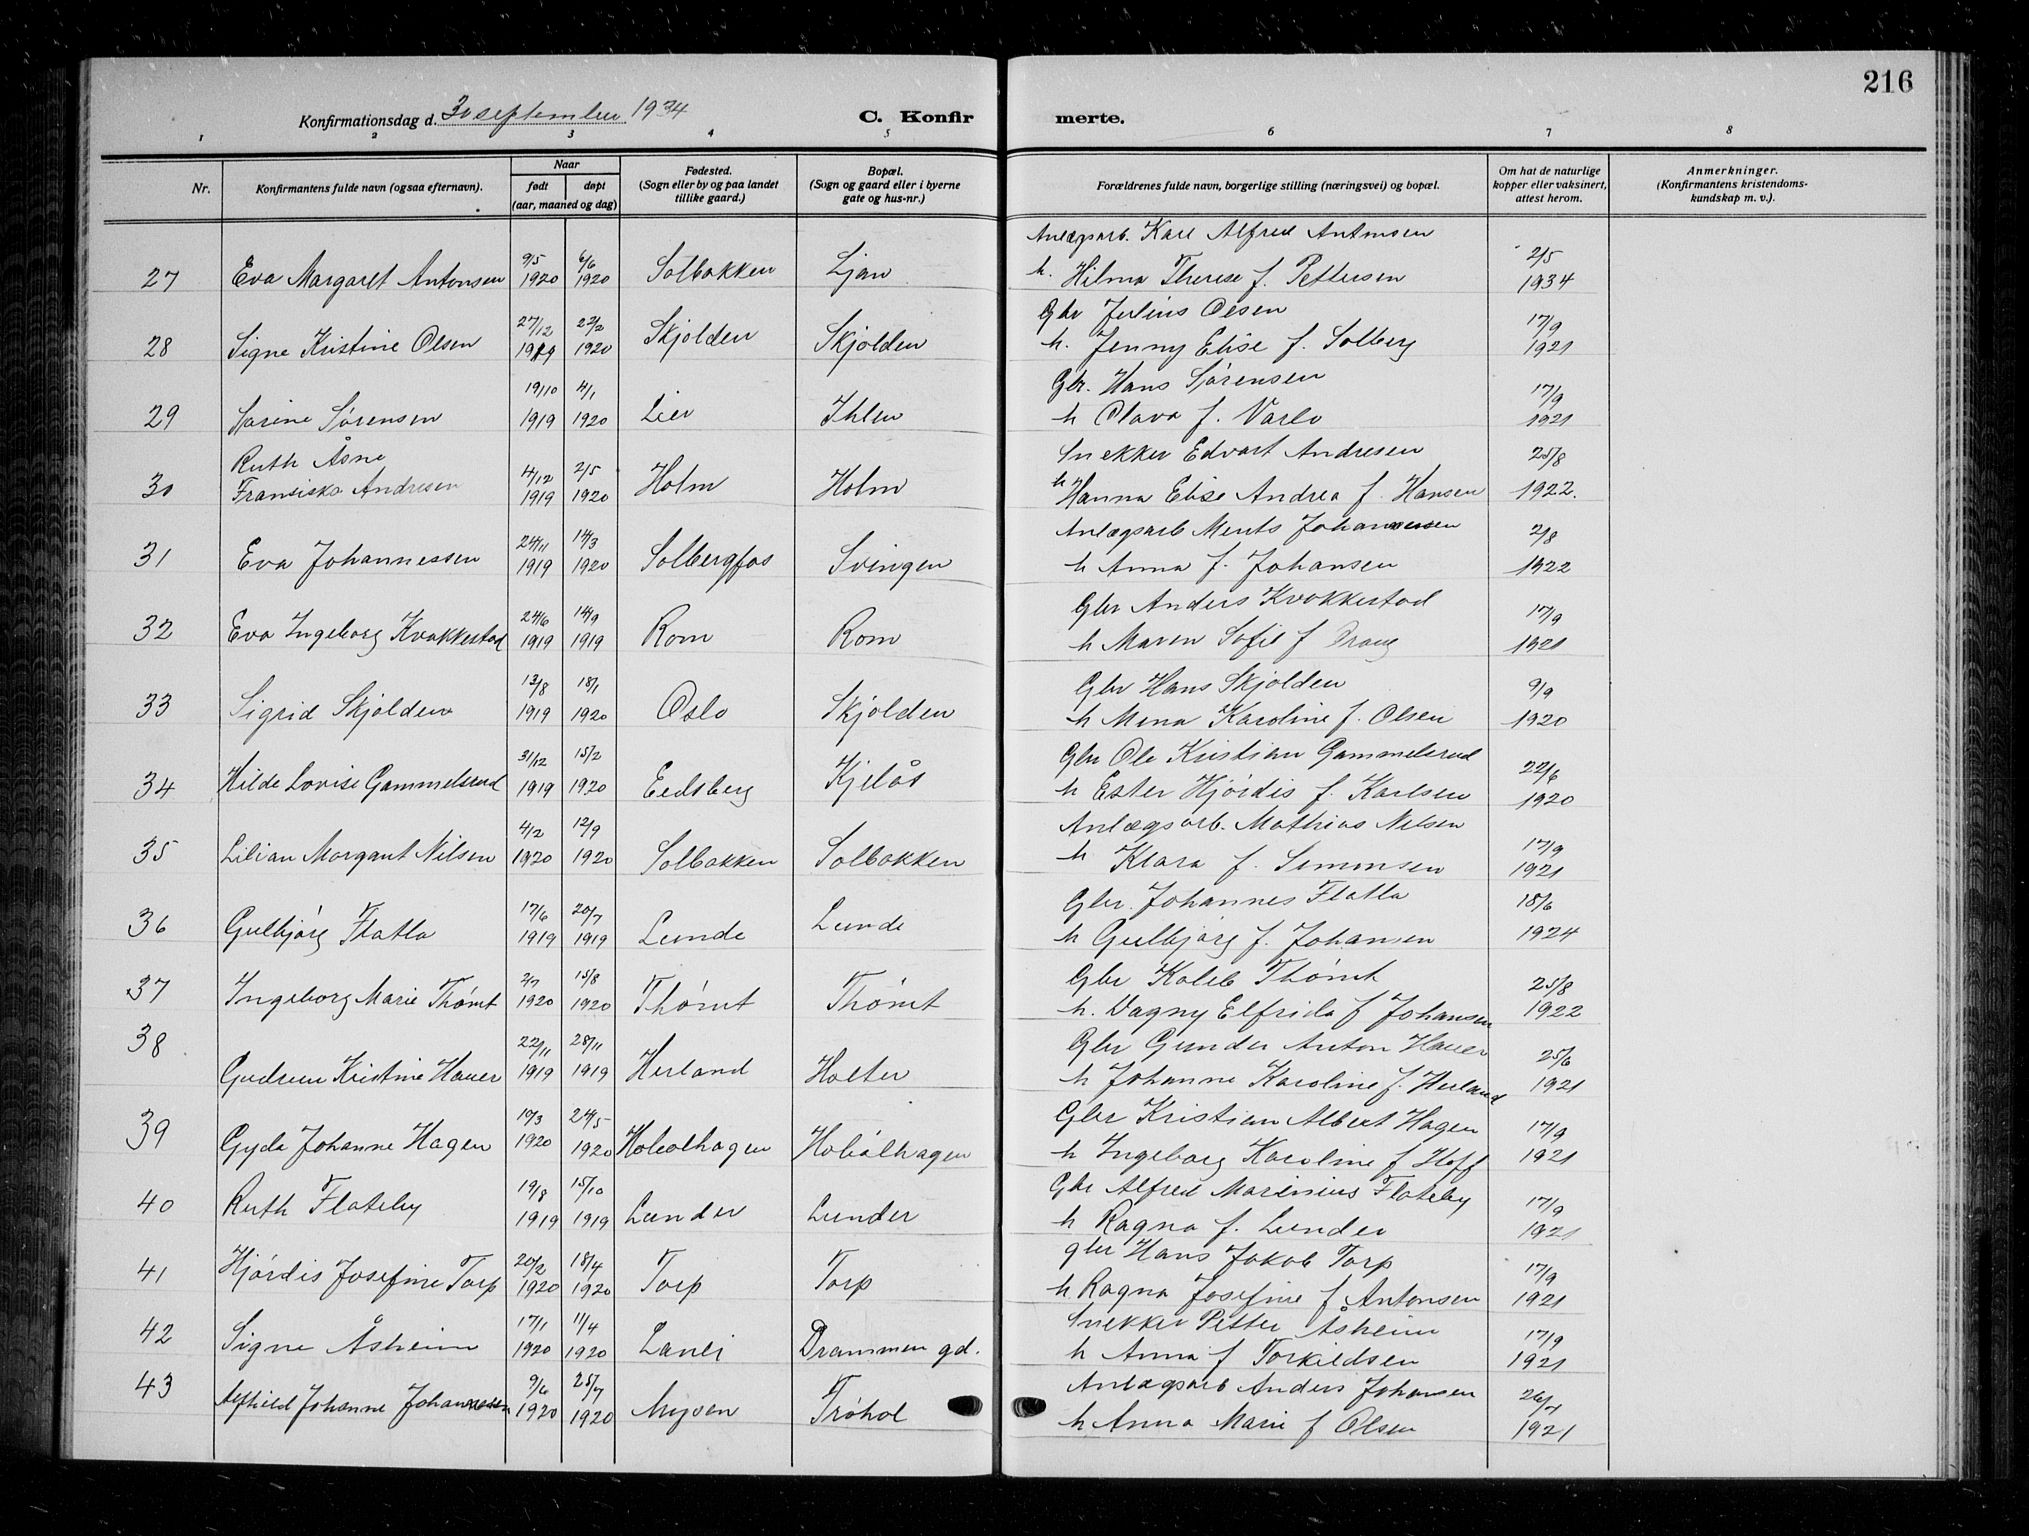 216
Konfirmationsdag d. 30 september 1934
C. Konfirmerte.
1 2 3 4 5 6 7 8
Nr.
Konfirmantens fulde navn (ogsaa efternavn).
Naar
født døpt
(aar, maaned og dag)
Fødested.
(Sogn eller by og paa landet
tillike gaard.)
Bopæl.
(Sogn og gaard eller i byerne
gate og hus-nr.)
Forældrenes fulde navn, borgerlige stilling (næringsvei) og bopæl.
Om hat de naturlige
kopper eller vaksinert,
attest herom.
Anmerkninger.
(Konfirmantens kristendoms-
kundskap m. v.).
9/5 6/6 Anlægsarb. Karl Alfred Antonsen 2/5
27 Eva Margaret Antonsen 1920 1920 Solbakken Ljan h. Hilma Therese f. Pettersen 1934
27/12 22/2 Gbr Julius Olsen 17/9
28 Signe Kristine Olsen 1919 1920 Skjolden Skjolden h. Jenny Elise f. Solberg 1921
19/10 4/1 Gbr. Hans Sørensen 17/9
29 Karine Sørensen 1919 1920 Lier Ihlen h Olava f. Varlo 1921
Ruth Åsne 4/12 2/5 Snekker Edvart Andresen 25/8
30 Fransiska Andresen 1919 1920 Holm Holm h Hanna Elise Andrea f. Hansen 1922.
24/11 14/3 Anlægsarb Ments Johannessen 2/8
31 Eva Johannessen 1919 1920 Solbergfos Svingen h Anna f. Johansen 1922
24/6 14/9 Gbr Anders Kvakkestad 17/9
32 Eva Ingeborg Kvakkestad 1919 1919 Rom Rom h Maren Sofie f Prang 1921
13/8 18/1 Gbr Hans Skjolden 9/9
33 Sigrid Skjolden 1919 1920 Oslo Skjolden h Mina Karoline f. Olsen 1920
31/12 15/2 Gbr Ole Kristian Gammelsrud 22/6
34 Hilde Lovise Gammelsrud 1919 1920 Eidsberg Kjelås h Ester Hjördis f. Karlsen 1920
4/2 12/9 Anlægsarb. Mathias Nilsen 17/9
35 Lilian Margaret Nilsen 1920 1920 Solbakken Solbakken h Klara f. Simonsen 1921
17/6 20/7 Gbr. Johannes Flatla 18/6
36 Gulbjörg Flatla 1919 1919 Lunde Lunde h Gulbjörg f. Johansen 1924
2/7 15/8 Gbr Kaleb Thömt 25/8
37 Ingeborg Marie Thömt 1920 1920 Thömt Thömt h. Dagny Elfrida f Johansen 1922
38 22/11 28/11 Gbr Gunder Anton Hauer 25/6
Gudrun Kristine Hauer 1919 1919 Herland Holter h Johanne Karoline f. Herland 1921
17/3 24/5 Gbr Kristian Albert Hagen 17/9
39 Gyda Johanne Hagen 1920 1920 Hobølhagen Hobölhagen h Ingeborg Karoline f Hoff 1921
19/8 15/10 Gbr Alfred Marinius Flateby 17/9
40 Ruth Flateby 1919 1919 Lunder Lunder h Ragna f. Lunder 1921
20/2 18/4 gbr Hans Jakob Torp 17/9
41 Hjördis Josefine Torp 1920 1920 Torp Torp h Ragna Josefine f Antonsen 1921
17/1 11/4 Snekker Petter Åsheim 17/9
42 Signe Åsheim 1920 1920 Drammen gd. h Anna f Torkildsen 1921
9/6 25/7 Anlægsarb Anders Johansen
43 Alfhild Johanne Johannessen 1920 1920 Mysen Tröhol h Anna Marie f Olsen 1921